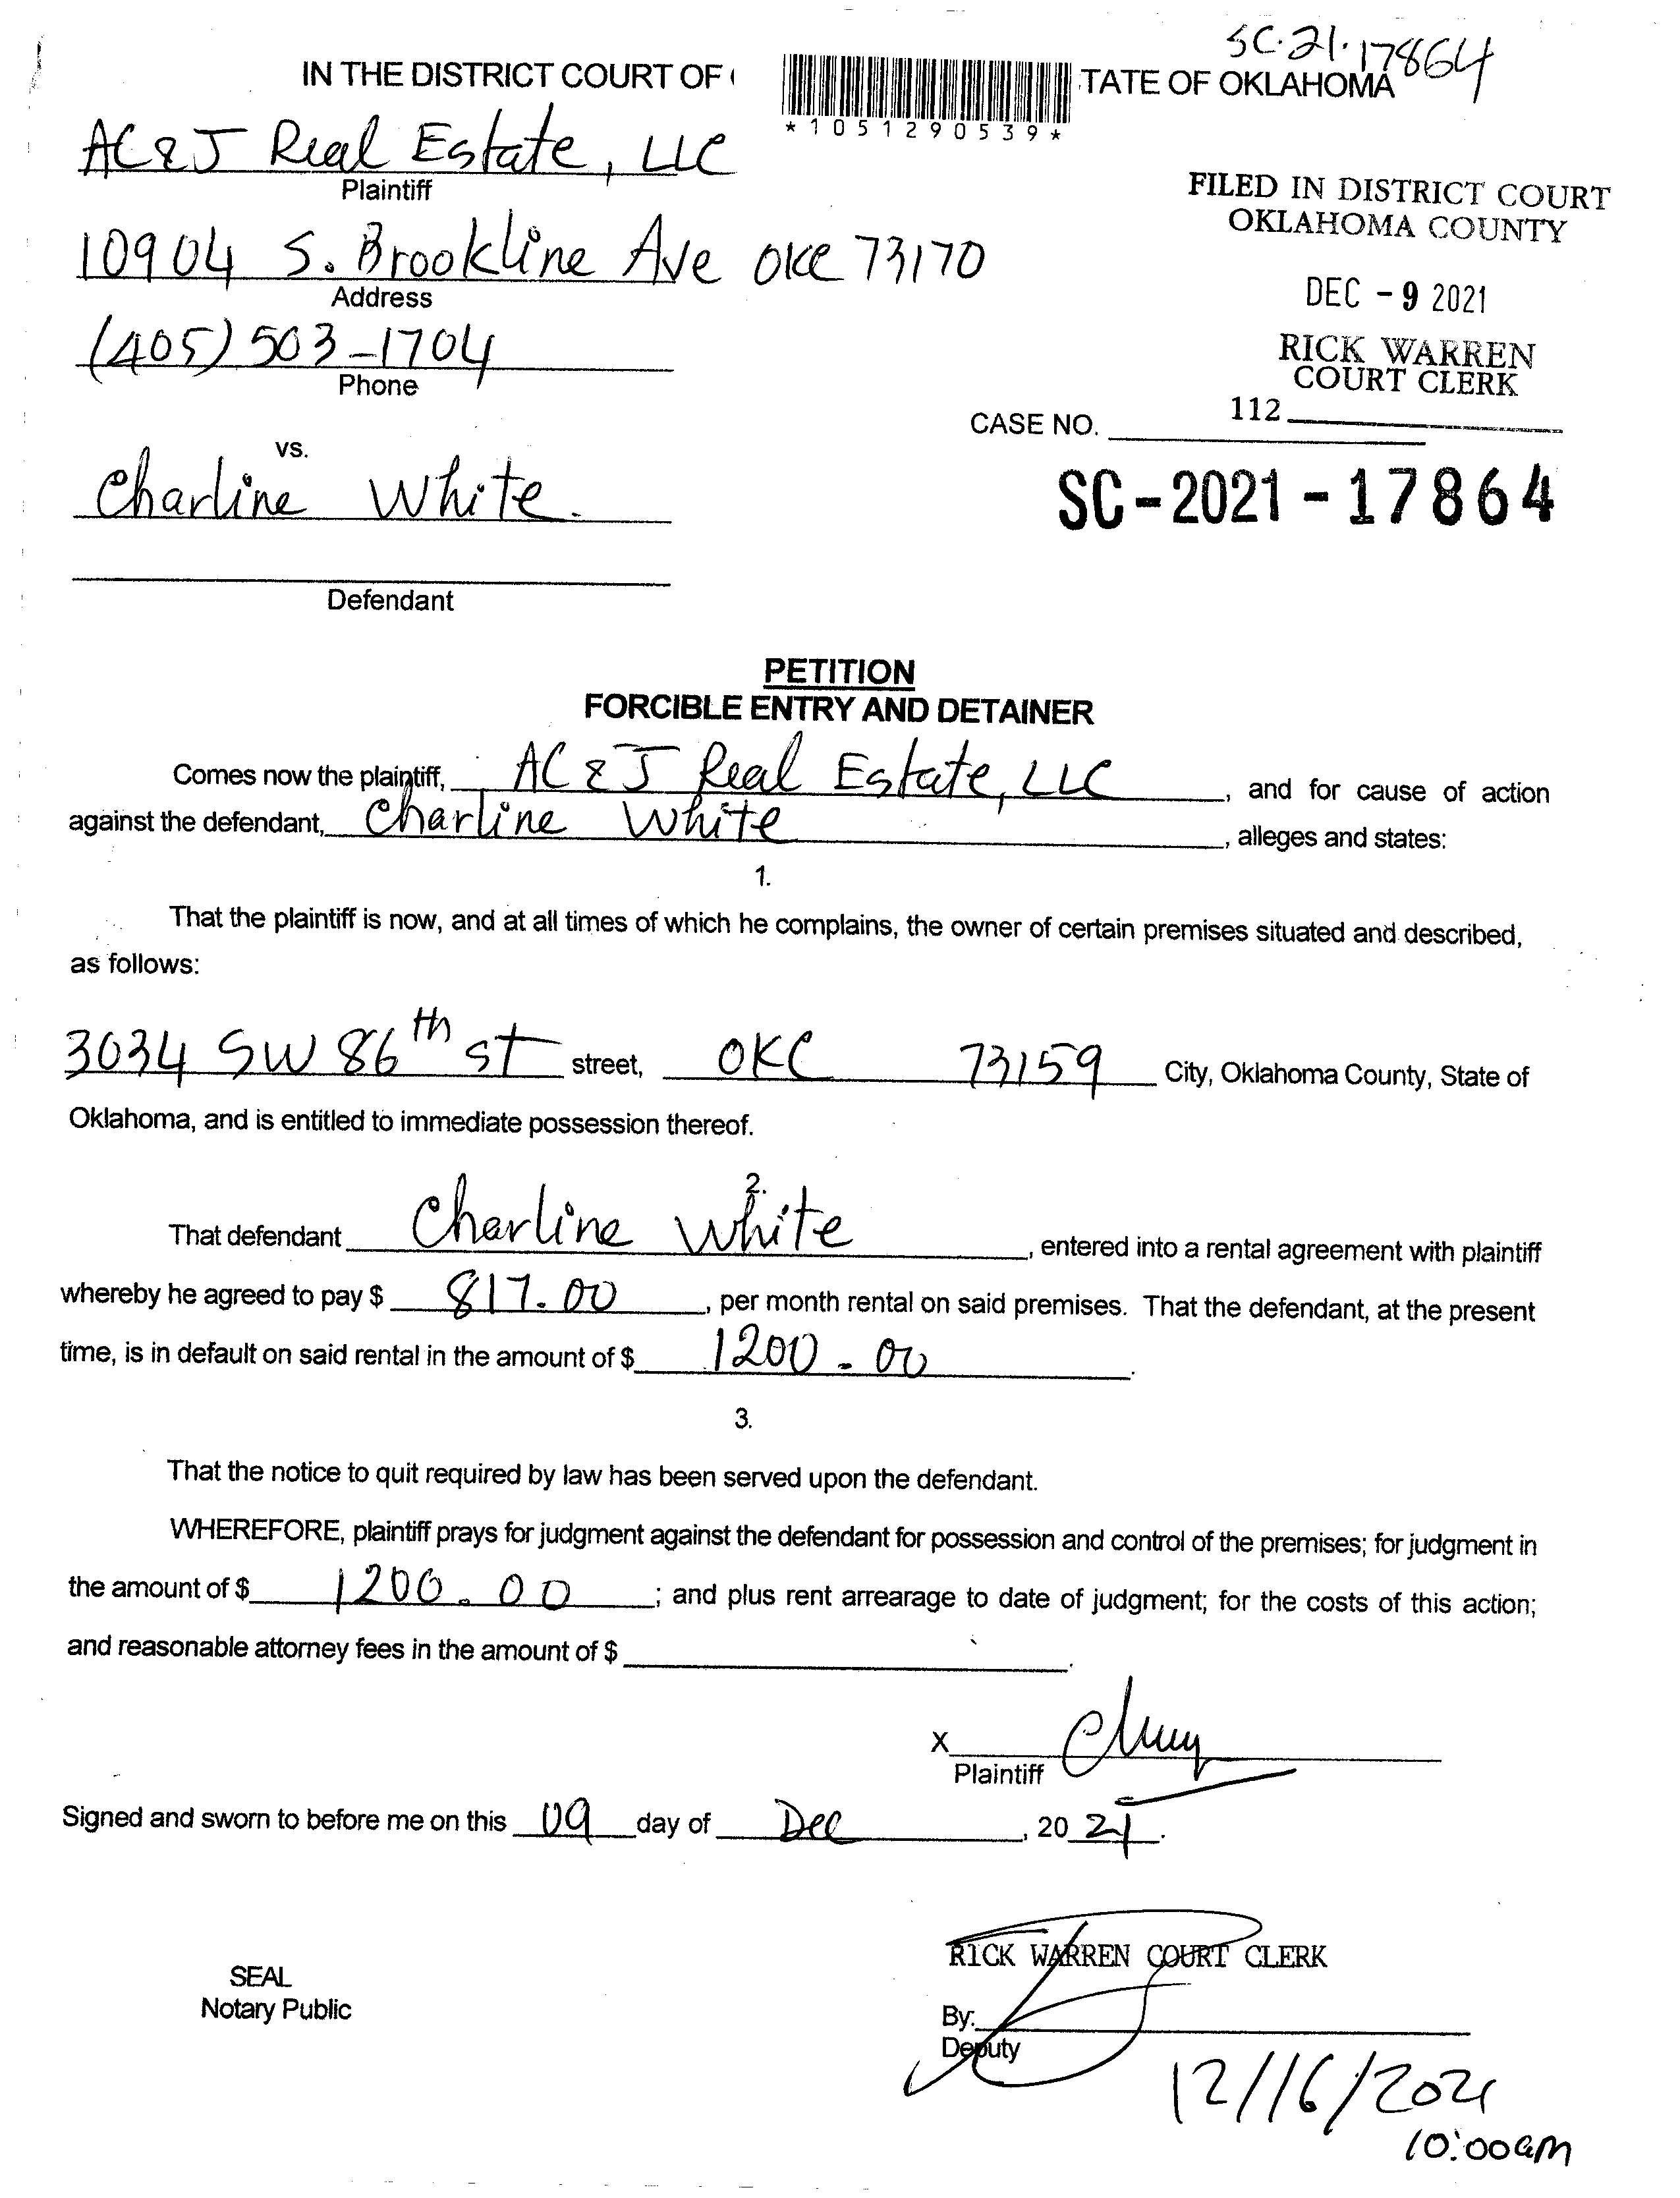 SC-21-17864
IN THE DISTRICT COURT OF TATE OF OKLAHOMA
*1051290539*
AC&J Real Estate, LLC
Plaintiff
FILED IN DISTRICT COURT
OKLAHOMA COUNTY
10904 S. Brookline Ave OKC 73170
Address
DEC - 9 2021
(405) 503-1704
Phone
RICK WARREN
COURT CLERK
CASE NO. 112
vs.
Charline White.
SC-2021-17864
Defendant
PETITION
FORCIBLE ENTRY AND DETAINER
Comes now the plaintiff, AC & J Real Estate, LLC, and for cause of action
against the defendant, Charline White, alleges and states:
1.
That the plaintiff is now, and at all times of which he complains, the owner of certain premises situated and described,
as follows:
3034 SW 86th St street, OKC 73159 City, Oklahoma County, State of
Oklahoma, and is entitled to immediate possession thereof.
2.
That defendant Charline White, entered into a rental agreement with plaintiff
whereby he agreed to pay $ 817.00, per month rental on said premises. That the defendant, at the present
time, is in default on said rental in the amount of $ 1200.00.
3.
That the notice to quit required by law has been served upon the defendant.
WHEREFORE, plaintiff prays for judgment against the defendant for possession and control of the premises; for judgment in
the amount of $ 1200.00; and plus rent arrearage to date of judgment; for the costs of this action;
and reasonable attorney fees in the amount of $ .
X
Plaintiff
Signed and sworn to before me on this 09 day of Dec, 2021.
RICK WARREN COURT CLERK
SEAL
Notary Public
By:
Deputy
12/16/2021
10:00am